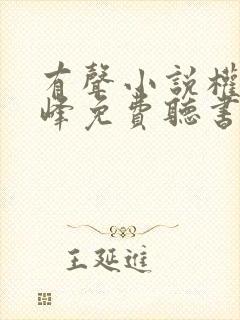 有聲小說權
峰免費聽書
王延進